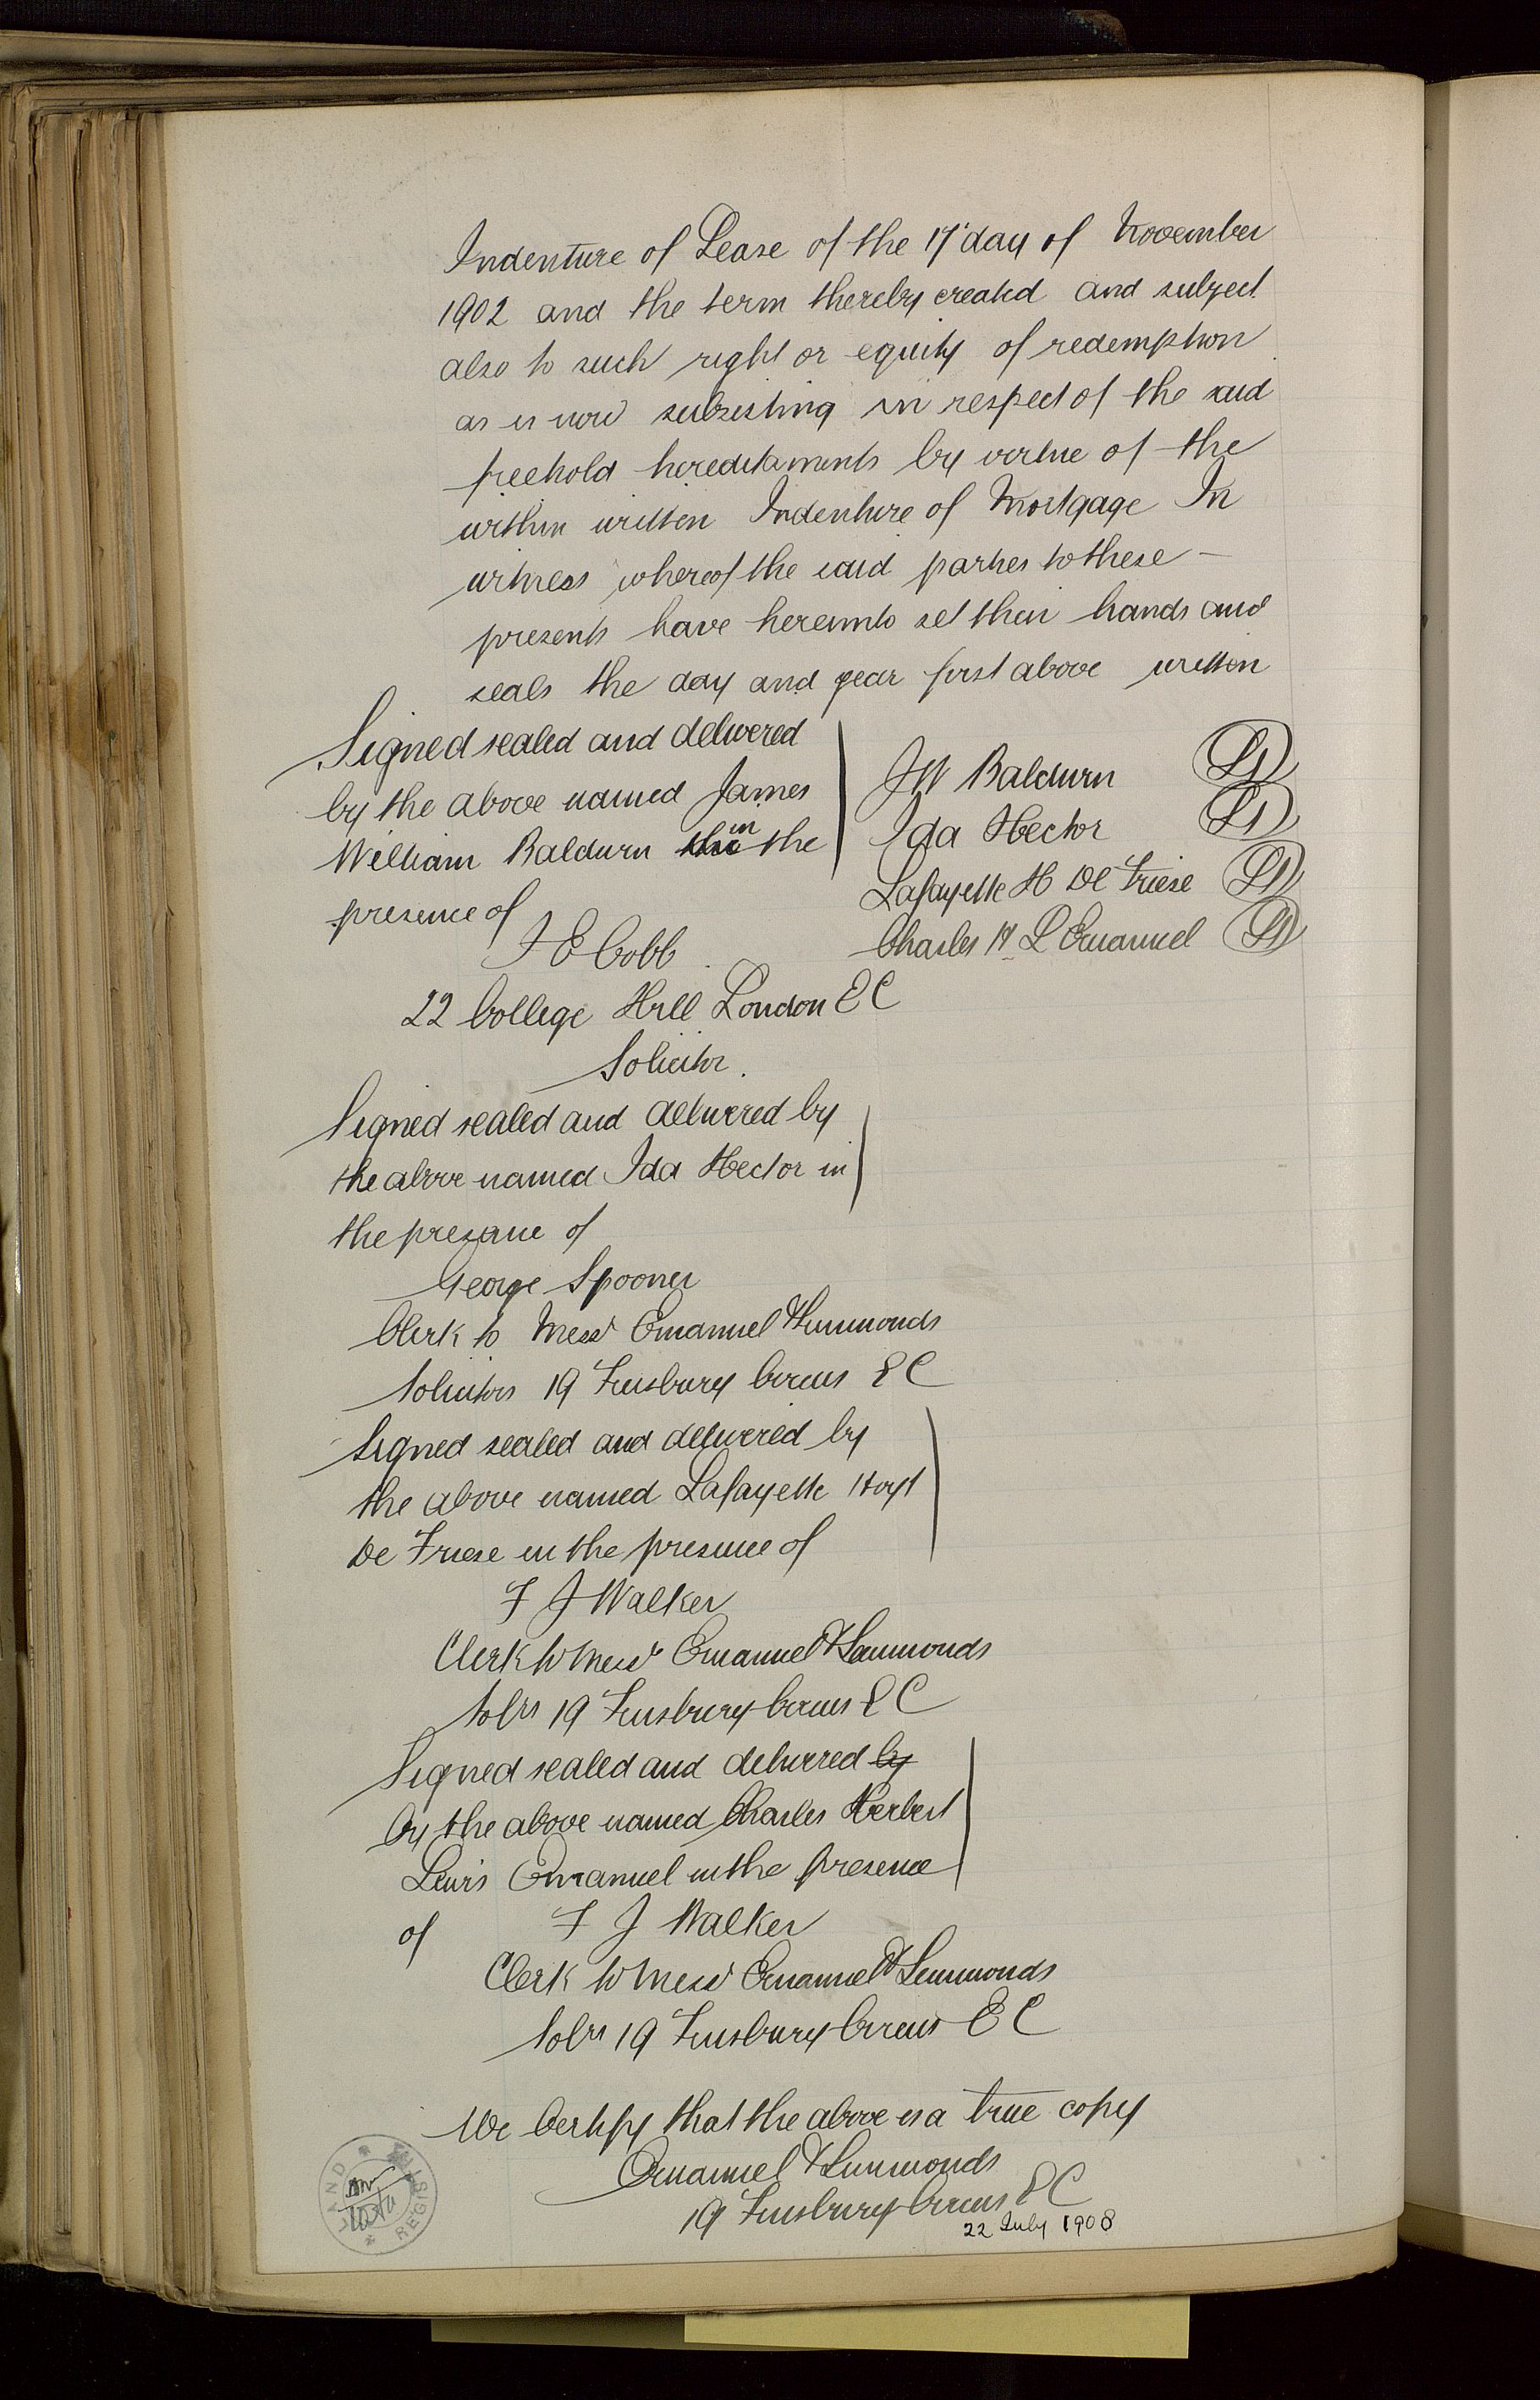 Indenture of Lease of the 17 day of November
1902 and the term thereby created and subject
also to such right or equity of redemption
as is now subsisting in respect of the said
freehold hereditaments by virtue of the
within written Indenture of Mortgage In
witness whereof the said parties to these —
presents have hereunto set their hands and
seals the day and year first above written
Signed sealed and delivered
by the above named James
William Baldwin in the
presence of
J W Baldwin LS
Ida Hector LS
Lafayette H De Friese LS
Charles H L Emanuel LS
J E Cobb
22 College Hill London E C
Solicitor.
Signed sealed and delivered by
the above named Ida Hector in
the presence of
George Spooner
Clerk to Messrs Emanuel & Simmonds
Solicitors 19 Finsbury Circus E C
Signed sealed and delivered by
the above named Lafayette Hoyt
De Friese in the presence of
F J Walker
Clerk to Messrs Emanuel & Simmonds
Solrs 19 Finsbury Circus E C
Signed sealed and delivered by
by the above named Charles Herbert
Lewis Emanuel in the presence
of F J Walker
Clerk to Messrs Emanuel & Simmonds
Solrs 19 Finsbury Circus E C
We Certify that the above is a true copy
Emanuel & Simmonds
19 Finsbury Circus E C
22 July 1908
LAND REGISTRY